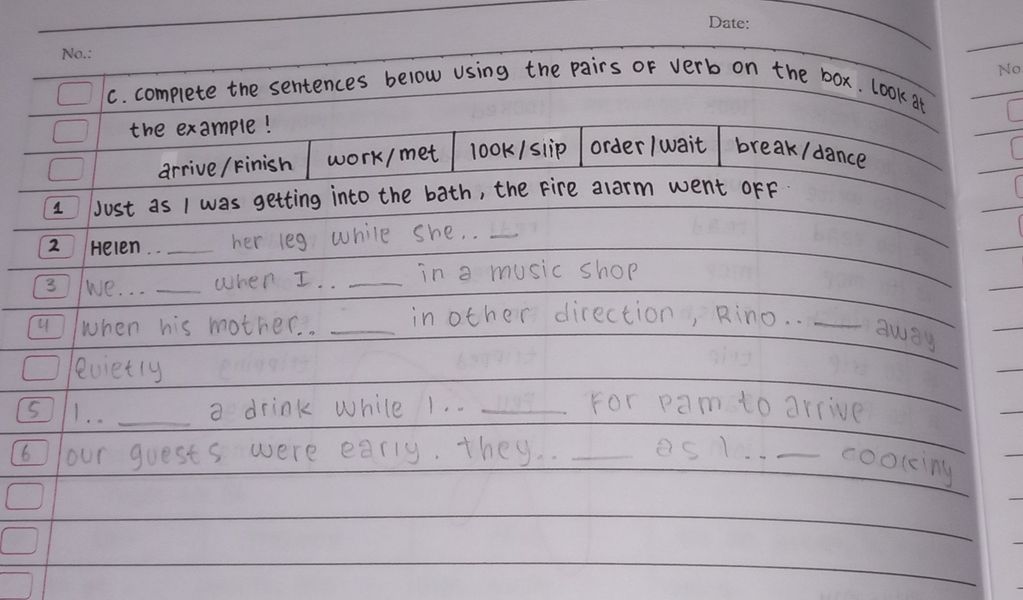 Date:
No.:
No
C. Complete the sentences below using the pairs of verb on the box. Look at
the example!
arrive/Finish | work/met | look/slip | order/wait | break/dance
1 Just as I was getting into the bath, the fire alarm went off.
2 Helen..____ her leg while she..__
3 We...___ when I..____ in a music shop
4 when his mother..____ in other direction, Rino..___ away
Quietly
5 I..____ a drink while I..____ For pam to arrive
6 our guests were early. They..___ as I..___ cooking